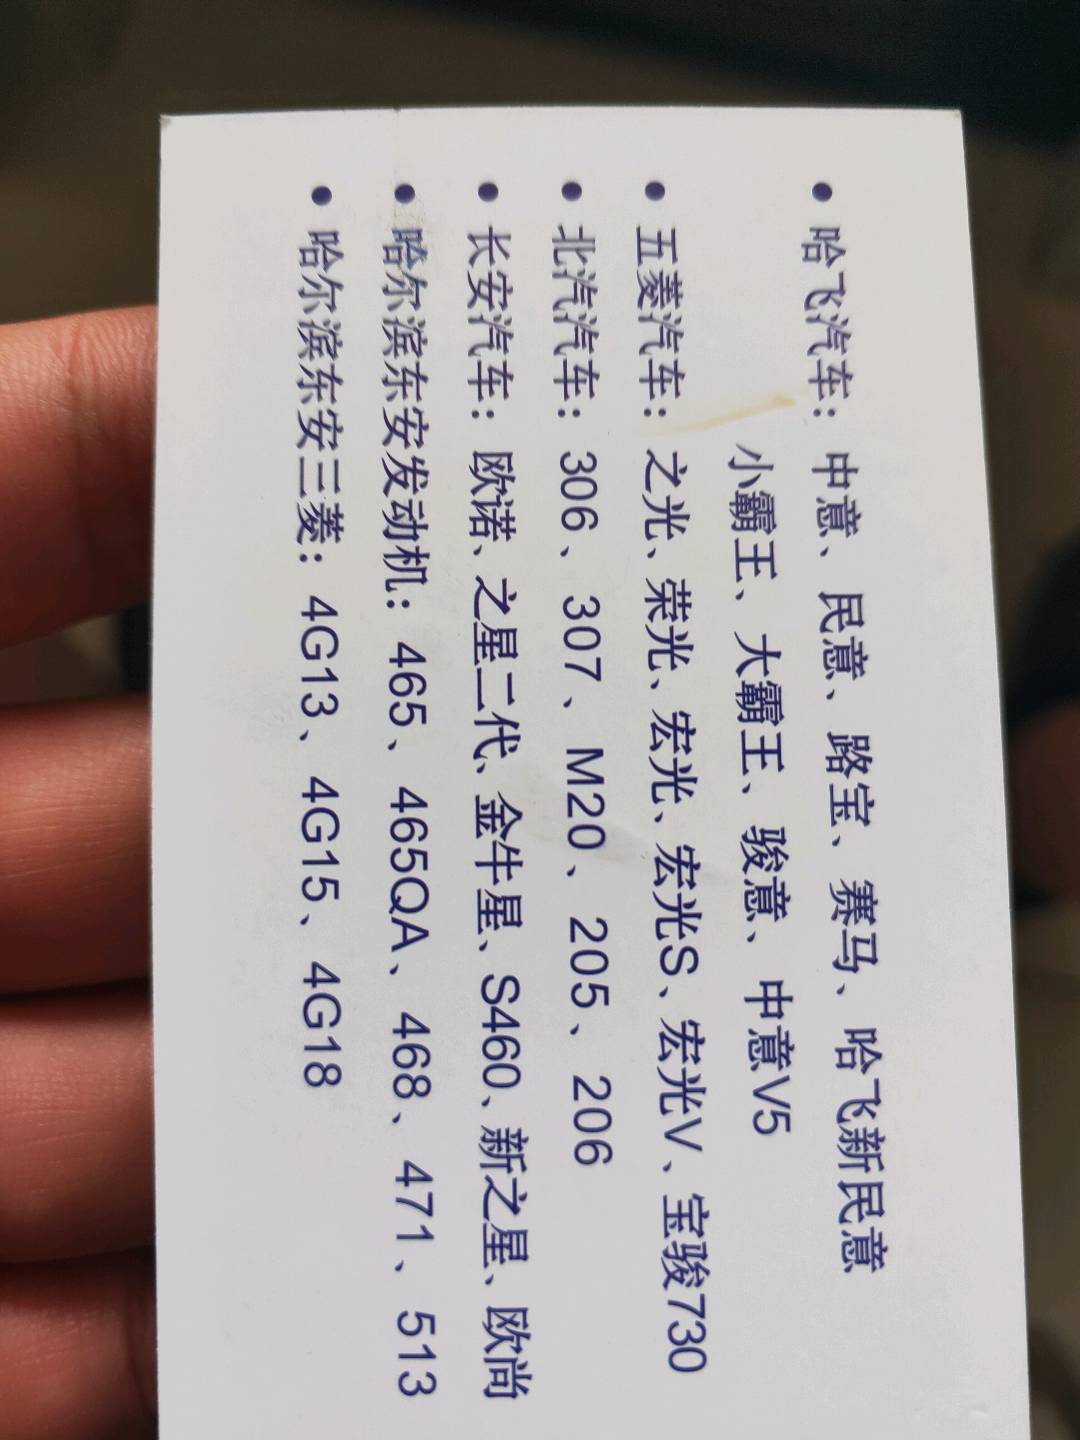 ● 哈飞汽车：中意、民意、路宝、赛马、哈飞新民意
小霸王、大霸王、骏意、中意V5
● 五菱汽车：之光、荣光、宏光、宏光S、宏光V、宝骏730
● 北汽汽车：306、307、M20、205、206
● 长安汽车：欧诺、之星二代、金牛星、S460、新之星、欧尚
● 哈尔滨东安发动机：465、465QA、468、471、513
● 哈尔滨东安三菱：4G13、4G15、4G18